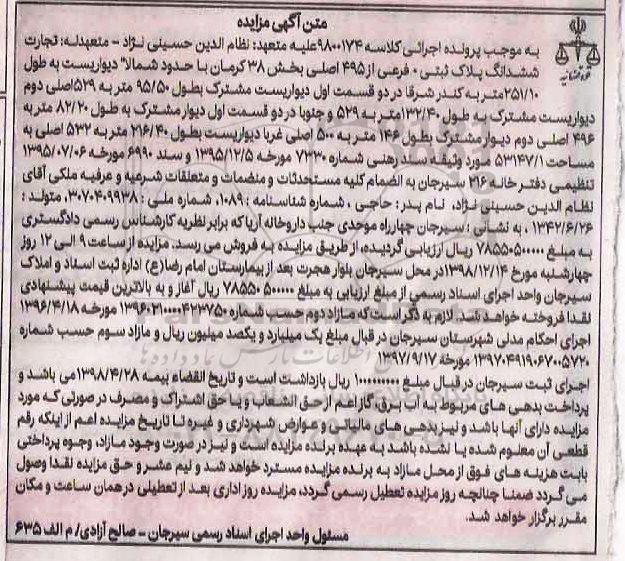 متن آگهی مزایده
به موجب پرونده اجرائی کلاسه ۹۸۰۰۱۷۴علیه متعهد: نظام الدین حسینی نژاد - متعهدله: تجارت
ششدانگ پلاک ثبتی - فرعی از ۴۹۵ اصلی بخش ۳۸ کرمان با حدود شمالا" دیواریست به طول
۲۵۱/۱۰متر به کندر شرقا در دو قسمت اول دیواریست مشترک بطول ۹۵/۵۰ متر به ۵۲۹اصلی دوم
دیواریست مشترک به طول ۱۳۲/۴۰متر به ۵۲۹ و جنوبا در دو قسمت اول دیوار مشترک به طول ۸۲/۲۰ متر به
۴۹۶ اصلی دوم دیوار مشترک بطول ۱۴۶ متر به ۵۰۰ اصلی غربا دیواریست بطول ۲۱۶/۴۰ متر به ۵۳۲ اصلی به
مساحت ۵۳۱۴۷/۱ مورد وثیقه سند رهنی شماره ۷۳۳۰ مورخه ۱۳۹۵/۱۲/۵ و سند ۶۹۹۰ مورخه ۱۳۹۵/۰۷/۰۶
تنظیمی دفتر خانه ۲۱۶ سیرجان به انضمام کلیه مستحدثات و منضمات و متعلقات شرعیه و عرفیه ملکی آقای
نظام الدین حسینی نژاد، نام پدر: حاجی ، شماره شناسنامه : ۱۰۸۹، شماره ملی : ۳۰۷۰۴۰۹۹۳۸، متولد :
۱۳۴۲/۶/۲۶ ، به نشانی : سیرجان چهارراه موحدی جنب داروخانه آریا که برابر نظریه کارشناس رسمی دادگستری
به مبلغ ۷۸۵۵۰۵۰۰۰۰۰ ریال ارزیابی گردیده، از طریق مزایده به فروش می رسد. مزایده از ساعت ۹ الی ۱۲ روز
چهارشنبه مورخ ۱۳۹۸/۱۲/۱۴در محل سیرجان بلوار هجرت بعد از بیمارستان امام رضا(ع) اداره ثبت اسناد و املاک
سیرجان واحد اجرای اسناد رسمی از مبلغ ارزیابی به مبلغ ۷۸۵۵۰۵۰۰۰۰۰ ریال آغاز و به بالاترین قیمت پیشنهادی
نقدا فروخته خواهد شد. لازم به ذکر است که مازاد دوم حسب شماره ۱۳۹۶۰۲۱۰۰۰۰۴۲۳۷۵۰ مورخه ۱۳۹۶/۴/۱۸
اجرای احکام مدنی شهرستان سیرجان در قبال مبلغ یک میلیارد و یکصد میلیون ریال و مازاد سوم حسب شماره
۱۳۹۷۰۴۹۱۹۰۶۷۰۰۵۷۲۰ مورخه ۱۳۹۷/۹/۱۷
اجرای ثبت سیرجان در قبال مبلغ ۱۰۰۰۰۰۰۰۰۰ ریال بازداشت است و تاریخ انقضاء بیمه ۱۳۹۸/۴/۲۸می باشد و
پرداخت بدهی های مربوط به آب، برق، گاز اعم از حق انشعاب و یا حق اشتراک و مصرف در صورتی که مورد
مزایده دارای آنها باشد و نیز بدهی های مالیاتی و عوارض شهرداری و غیره تا تاریخ مزایده اعم از اینکه رقم
قطعی آن معلوم شده یا نشده باشد به عهده برنده مزایده است و نیز در صورت وجود مازاد، وجوه پرداختی
بابت هزینه های فوق از محل مازاد به برنده مزایده مسترد خواهد شد و نیم عشر و حق مزایده نقدا وصول
می گردد ضمنا چنانچه روز مزایده تعطیل رسمی گردد، مزایده روز اداری بعد از تعطیلی در همان ساعت و مکان
مقرر برگزار خواهد شد.
مسئول واحد اجرای اسناد رسمی سیرجان - صالح آزادی/ م الف ۶۳۵